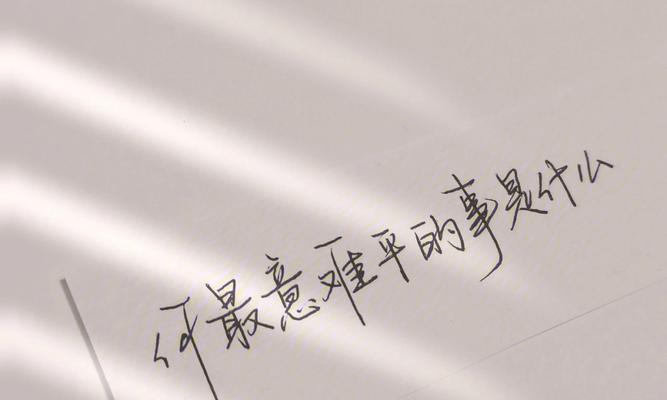 你最意难平的事是什么